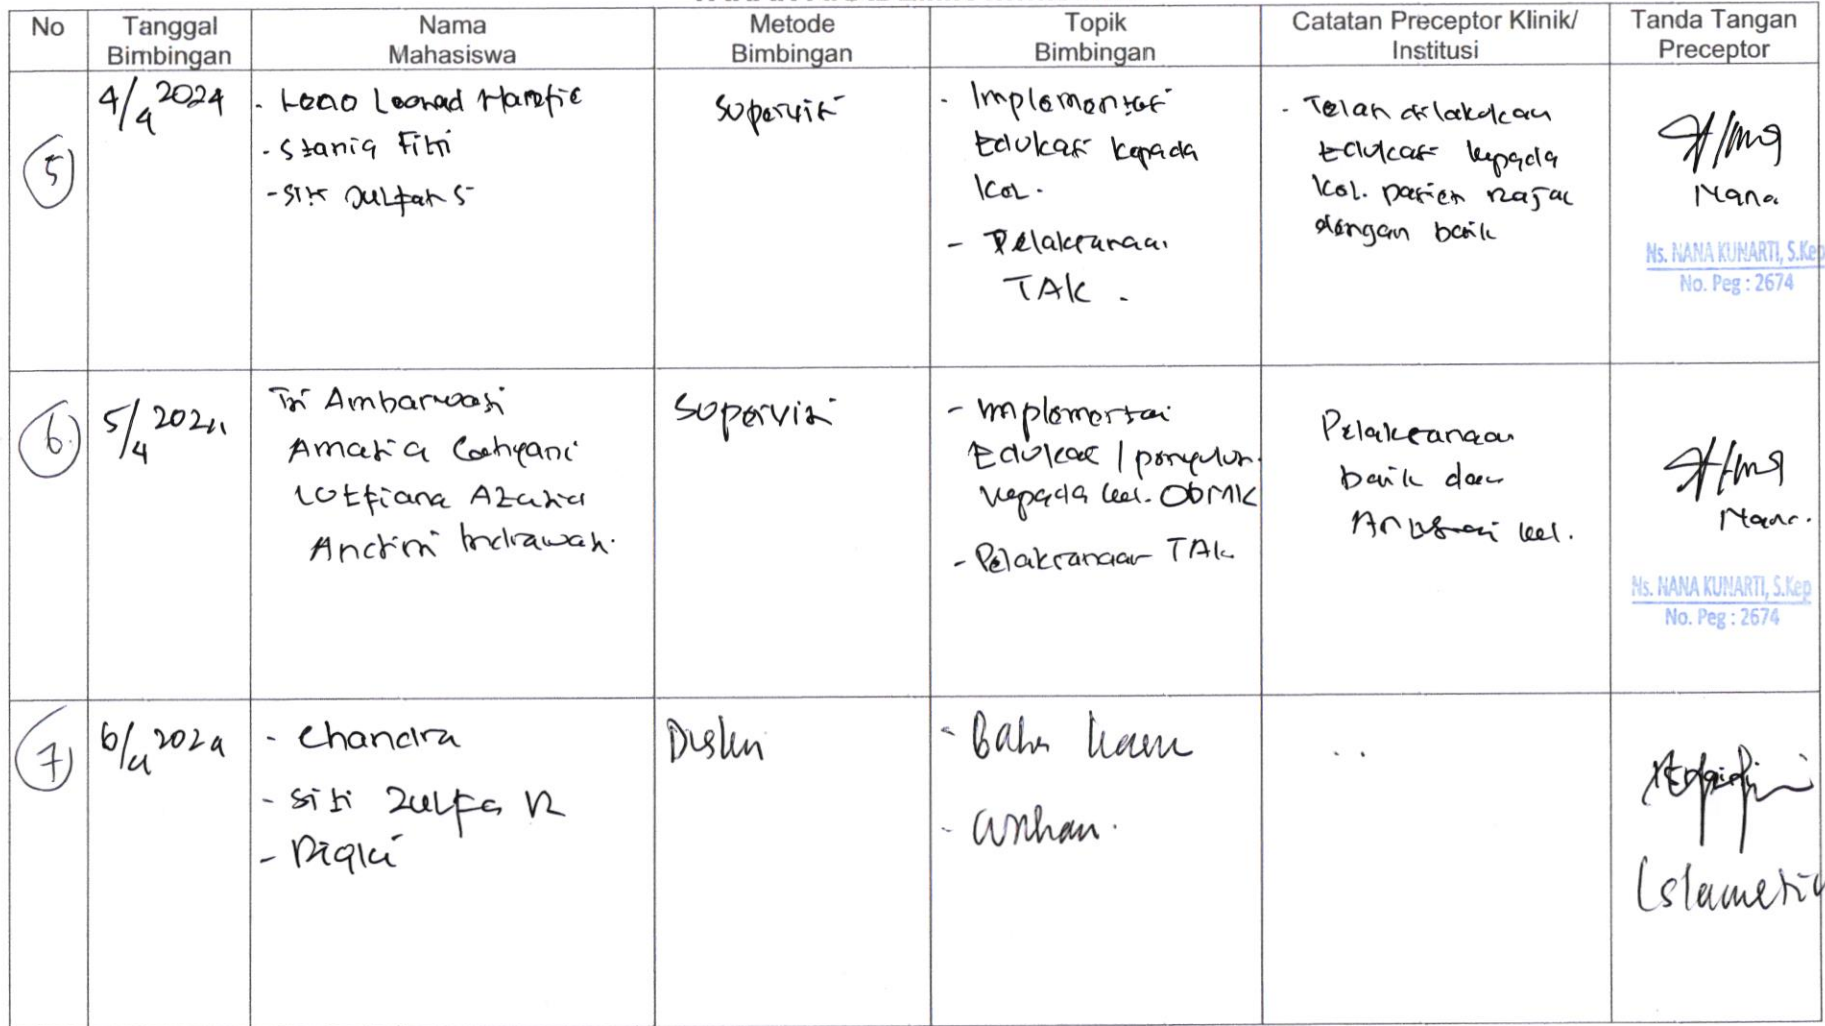 No
Tanggal
Bimbingan
Nama
Mahasiswa
Metode
Bimbingan
Topik
Bimbingan
Catatan Preceptor Klinik/
Institusi
Tanda Tangan
Preceptor
5
4/4 2024
- Leonad
- Fitri
- Siti
Supervisi
- Implementasi
Edukasi kepada
kel.
- Pelaksanaan
TAK.
- Telah dilakukan
Edukasi kepada
kel. pasien
dengan baik
Nana
Ns. NANA KUNARTI, S.Kep
No. Peg : 2674
6
5/4 2024
Tri Ambarwati
Amalia Cahyani
Andini Indrawati.
Supervisi
- Implementasi
Edukasi / penyuluh
kepada kel. ODMK
- Pelaksanaan TAK
Pelaksanaan
baik dan
kel.
Nana.
Ns. NANA KUNARTI, S.Kep
No. Peg : 2674
7
6/4 2024
- Chandra
- Siti Zulfa R
- Rizki
Diskusi
- 
- Askhan.